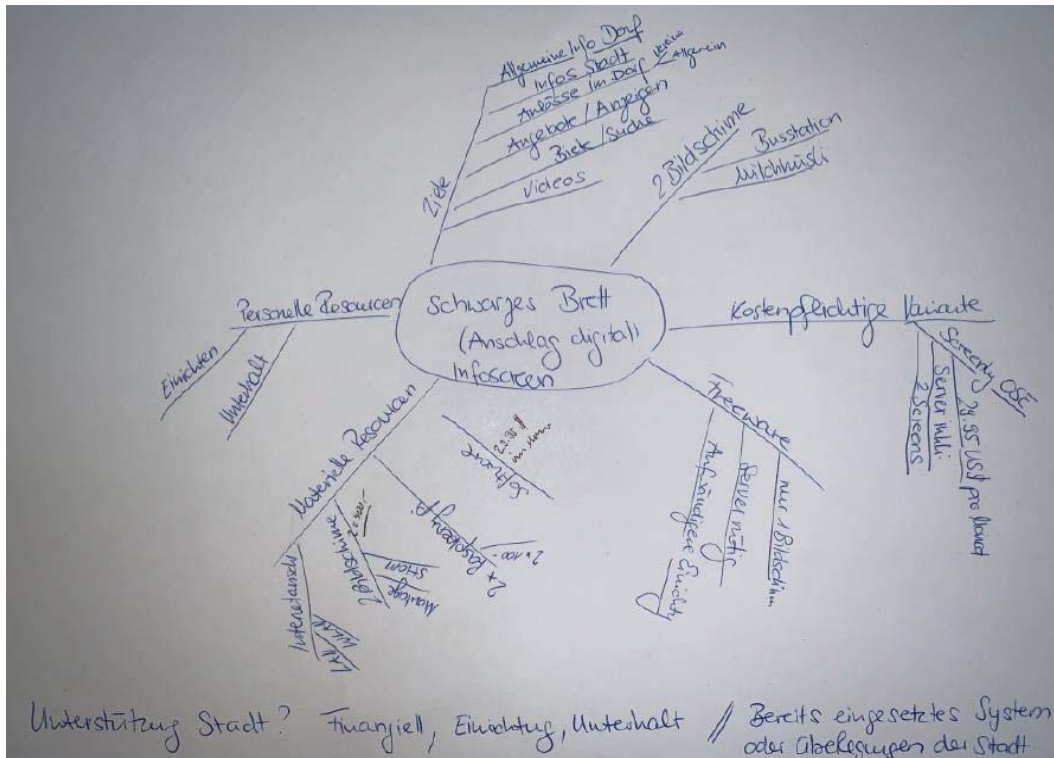 Schwarzes Brett
(Anschlag digital)
Infoscreen
Ziele
Allgemeine Info Dorf
Infos Stadt
Anlässe im Dorf
Vereine
Allgemein
Angebote / Anzeigen
Biete / Suche
Videos
2 Bildschirme
Busstation
Milchhüsli
Kostenpflichtige Variante
Screenly OSE
29.95 US$ pro Monat
Server inkl.
2 Screens
Freeware
nur 1 Bildschirm
Server nötig
Aufwändigere
Software
29.95 $
2x Raspberry Pi
2 x 100.-
Materielle Resourcen
2 Bildschirme
Strom
Montage
Internetanschl
WLAN
LAN
Personelle Resourcen
Einrichten
Unterhalt
Unterstützung Stadt? Finanziell, Einrichtung, Unterhalt // Bereits eingesetztes System
oder Überlegungen der Stadt